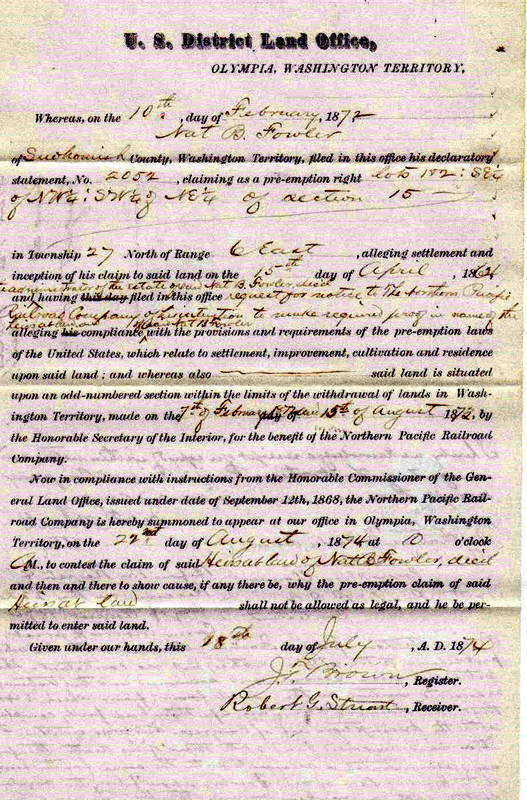 U. S. District Land Office,
OLYMPIA, WASHINGTON TERRITORY,
Whereas, on the 10th, day of February, 1872
Nat B. Fowler
of Snohomish County, Washington Territory, filed in this office his declaratory
statement, No. 2052, claiming as a pre-emption right lots 1&2: SE¼
of NW¼: SW¼ of NE¼ Of section 15
in Township 27 North of Range 6 East, alleging settlement and
inception of his claim to said land on the 15th day of April, 186
administrator of the estate of said Nat B. Fowler, decd
and having this day filed in this office request for notice to The Northern Pacific
Railroad Company of intention to make required proof in name of the
heirs at law of said Nat B Fowler
alleging his compliance with the provisions and requirements of the pre-emption laws
of the United States, which relate to settlement, improvement, cultivation and residence
upon said land; and whereas also said land is situated
upon an odd-numbered section within the limits of the withdrawal of lands in Wash-
ington Territory, made on the 7th of February day of 15th of August 187, by
the Honorable Secretary of the Interior, for the benefit of the Northern Pacific Railroad
Company.
Now in compliance with instructions from the Honorable Commissioner of the Gen-
eral Land Office, issued under date of September 12th, 1868, the Northern Pacific Rail-
road Company is hereby summoned to appear at our office in Olympia, Washington
Territory, on the 22nd day of August, 1874 at 10 o'clock
A M., to contest the claim of said Heirs at law of Nat B Fowler, decd
and then and there to show cause, if any there be, why the pre-emption claim of said
Heirs at law shall not be allowed as legal, and he be per-
mitted to enter said land.
Given under our hands, this 18th day of July, A. D. 1874
J. T. Brown, Register.
Robert G. Stuart, Receiver.